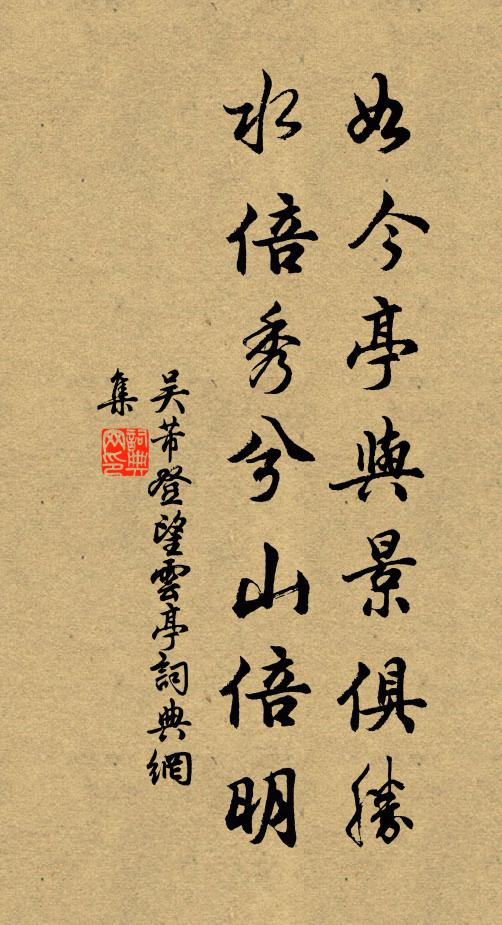 如今亭與景俱勝
水倍秀兮山倍明
吴芾登望雲亭詞典網
集
詞典網印